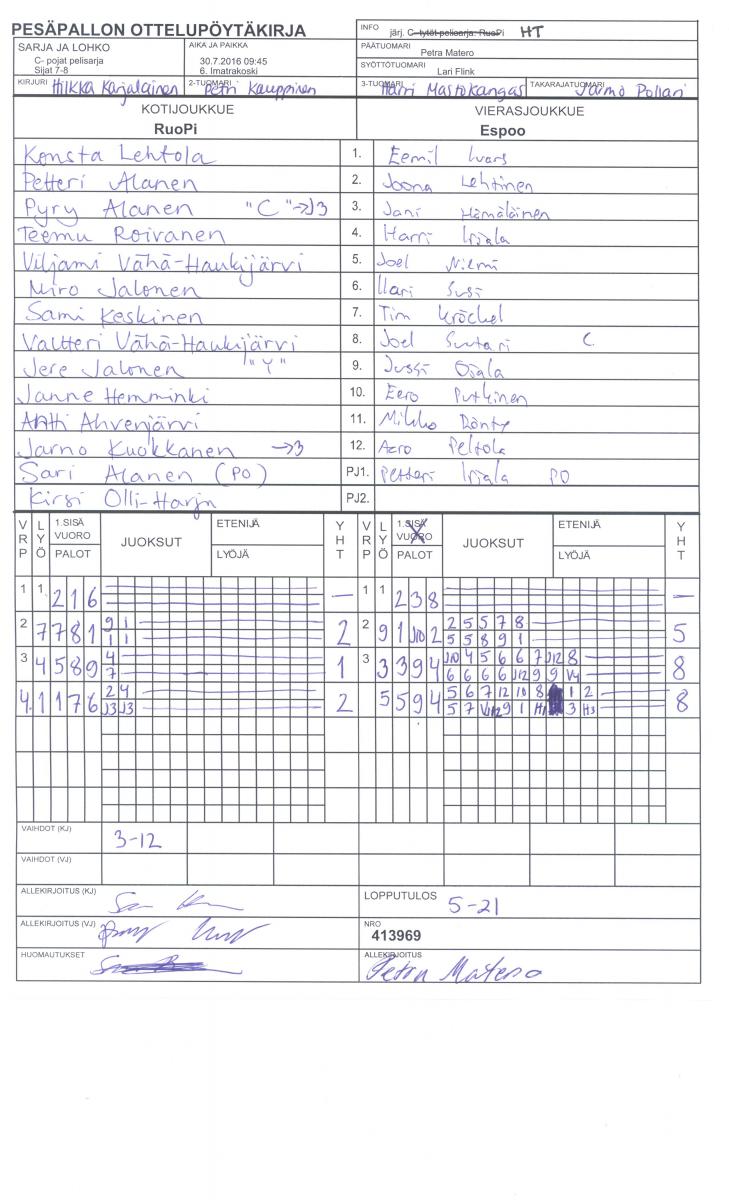 PESÄPALLON OTTELUPÖYTÄKIRJA
INFO järj. C-tytöt pelisarja: RuoPi HT
SARJA JA LOHKO
C- pojat pelisarja
Sijat 7-8
AIKA JA PAIKKA
30.7.2016 09:45
6. Imatrakoski
PÄÄTUOMARI
Petra Matero
SYÖTTÖTUOMARI
Lari Flink
KIRJURI Hilkka Karjalainen 2-TUOMARI Petri Kauppinen 3-TUOMARI Harri Mastokangas TAKARAJATUOMARI Jarmo Pollari
KOTIJOUKKUE VIERASJOUKKUE
RuoPi Espoo
Konsta Lehtola 1. Eemil Ivars
Petteri Alanen 2. Joona Lehtinen
Pyry Alanen "C"→J3 3. Jani Hämäläinen
Teemu Roivanen 4. Harri Irjala
Viljami Vähä-Haukijärvi 5. Joel Niemi
Miro Jalonen 6. Ilari Susi
Sami Keskinen 7. Tim Kröckel
Valtteri Vähä-Haukijärvi 8. Joel Suutari C.
Jere Jalonen "Y" 9. Jussi Ojala
Janne Hemminki 10. Eero Putkinen
Antti Ahvenjärvi 11. Mikko
Jarno Kuokkanen →3 12. Aaro Peltola
Sari Alanen (PO) PJ1. Petteri Irjala PO
Kirsi Olli-Harja PJ2.
VRP LYÖ 1.SISÄ VUORO PALOT JUOKSUT ETENIJÄ LYÖJÄ YHT VRP LYÖ 1.SISÄ VUORO PALOT JUOKSUT ETENIJÄ LYÖJÄ YHT
1 1 2 1 6 — 1 1 2 3 8 —
2 7 7 8 1 9 1 2 2 9 1 J10 2 2 5 5 7 8 5
1 1 5 5 8 9 1
3 4 5 8 9 4 1 3 3 3 9 4 J10 4 5 6 6 7 J12 8 8
7 6 6 6 6 J12 9 9 V4
4. 1 1 7 6 2 4 2 5 5 9 4 5 6 7 12 10 8 1 2 8
J3 J3 5 7 V12 9 1 H1 3 H3
VAIHDOT (KJ) 3-12
VAIHDOT (VJ)
ALLEKIRJOITUS (KJ) LOPPUTULOS 5-21
ALLEKIRJOITUS (VJ) NRO
413969
HUOMAUTUKSET ALLEKIRJOITUS
Petra Matero